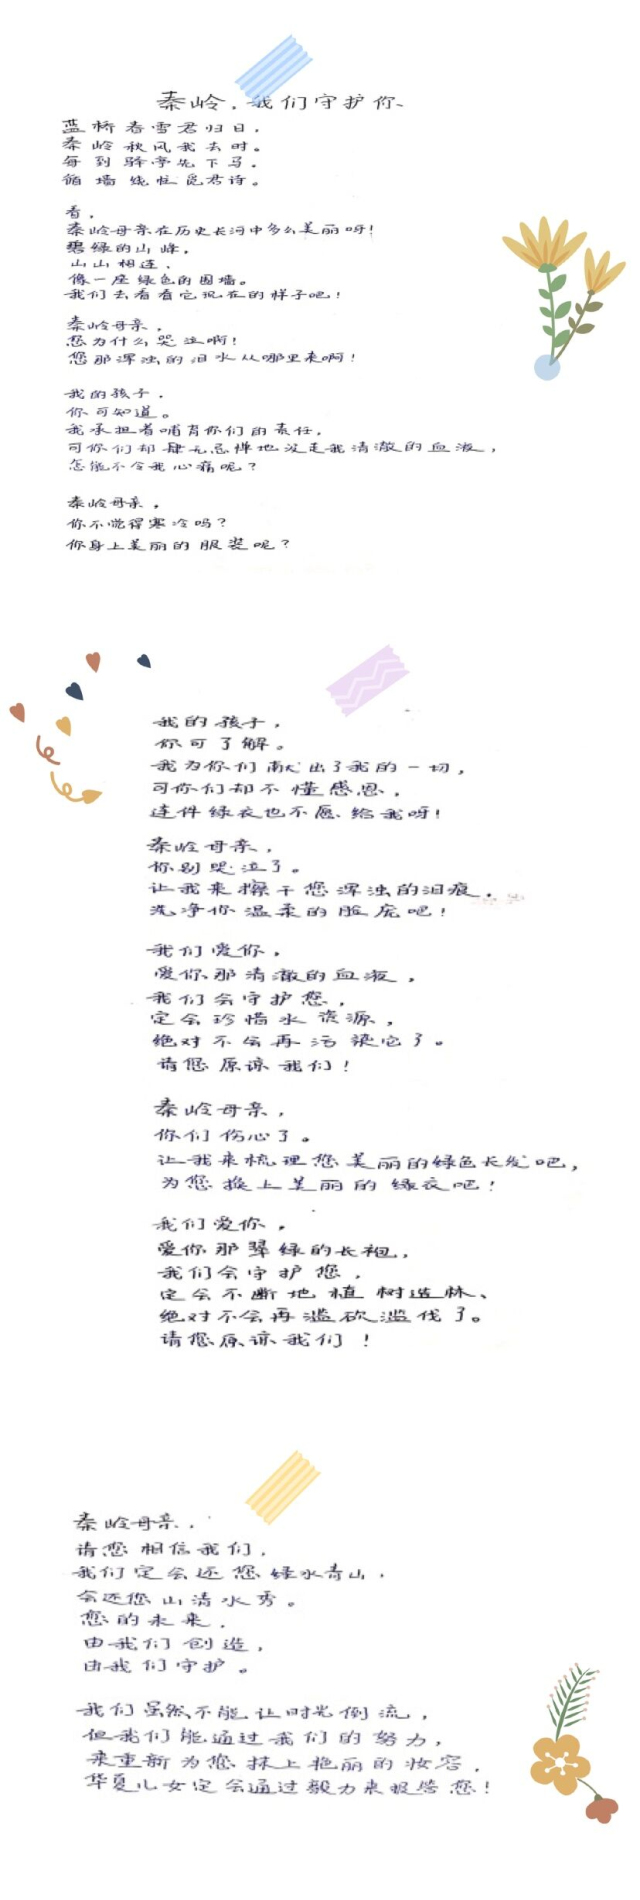 秦岭,我们守护你、
蓝桥春雪君归日,
秦岭秋风我去时。
每到驿亭先下马,
循墙绕柱觅君诗。
看,
秦岭母亲在历史长河中多么美丽呀!
碧绿的山峰,
山山相连,
像一座绿色的围墙。
我们去看看它现在的样子吧!
秦岭母亲,
您为什么哭泣啊!
您那浑浊的泪水从哪里来啊!
我的孩子,
你可知道。
我承担着哺育你们的责任,
可你们却肆无忌惮地没走我清澈的血液,
怎能不令我心痛呢?
秦岭母亲,
你不觉得寒冷吗?
你身上美丽的服装呢?
我的孩子,
你可了解。
我为你们献出了我的一切,
可你们却不懂感恩,
连件绿衣也不愿给我呀!
秦岭母亲,
你别哭泣了。
让我来擦干您浑浊的泪痕,
洗净你温柔的脸庞吧!
我们爱你,
爱你那清澈的血液,
我们会守护您,
定会珍惜水资源,
绝对不会再污染它了。
请您原谅我们!
秦岭母亲,
你们伤心了。
让我来梳理您美丽的绿色长发吧,
为您换上美丽的绿衣吧!
我们爱你,
爱你那翠绿的长袍,
我们会守护您,
定会不断地植树造林、
绝对不会再滥砍滥伐了。
请您原谅我们!
秦岭母亲,
请您相信我们,
我们定会还您绿水青山,
会还您山清水秀。
您的未来,
由我们创造,
由我们守护。
我们虽然不能让时光倒流,
但我们能通过我们的努力,
来重新为您抹上艳丽的妆容,
华夏儿女定会通过毅力来报答您!